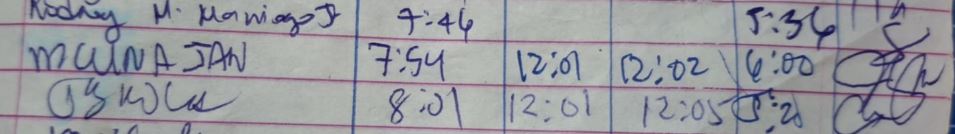 Rodney M. Maniago Jr 7:46 5:36
MCLINA JAN 7:54 12:01 12:02 6:00
8:01 12:01 12:05 5:20